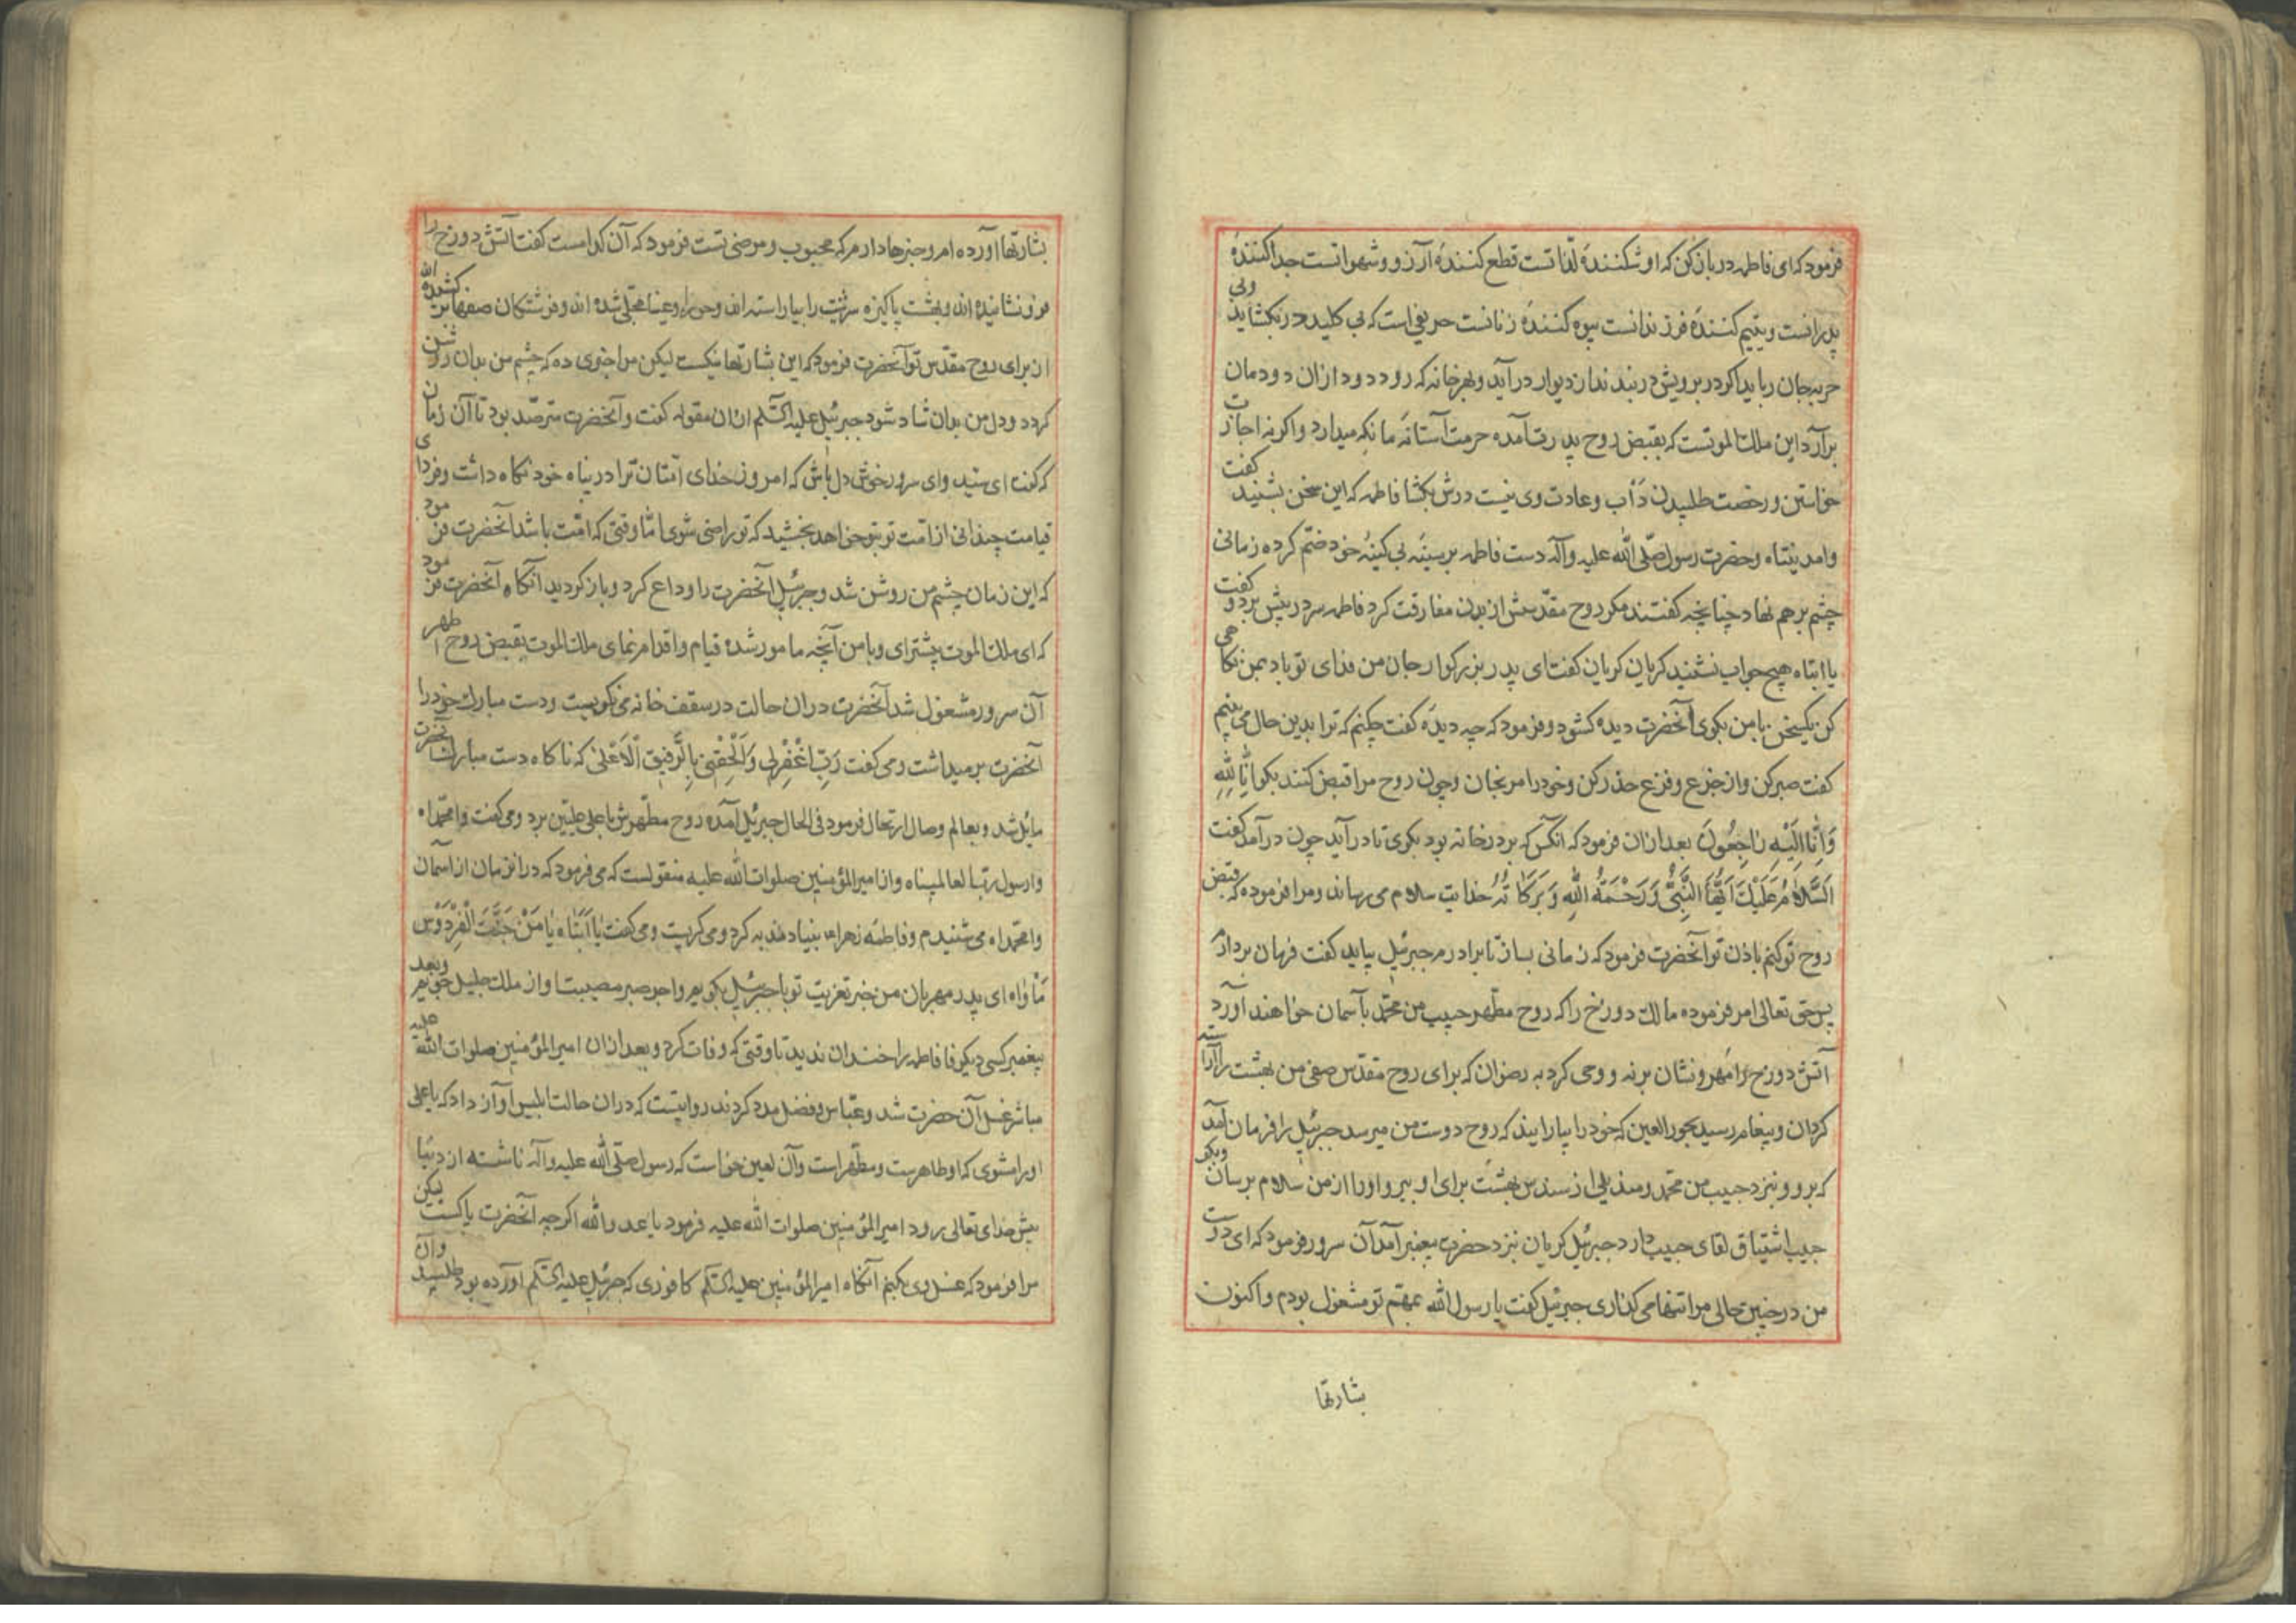 فرمود که ای فاطمه در باز کن که او شکنندۀ لذّاتست قطع کنندۀ آرزو و شهواتست جدا کنندۀ
پدرانست و یتیم کنندۀ فرزندانست بیوه کنندۀ زنانست حریفی است که بی کلید در بکشاید و بی
حربه جان رباید اکر در برویش دربندند از دیوار درآید و بهر خانه که رود دود ازان دودمان
برآرد این ملک الموتست که بقبض روح پدرت آمده حرمت آستانۀ ما نکه میدارد و اکرنه اجازت
خواستن و رخصت طلبیدن دأب و عادت وی نیست درش بکشا فاطمه که این سخن بشنید کفت
وامدینتاه و حضرت رسول صلّی الله علیه وآله دست فاطمه بر سینۀ بی کینۀ خود ضمّ کرده زمانی
چشم برهم نهاد چنانچه کفتند مکر روح مقدّسش از بدن مفارقت کرد فاطمه سر در پیش برد و کفت
یا ابتاه هیچ جواب نشنید کریان کریان کفت ای پدر بزرکوار جان من فدای تو باد بمن نکاهی
کن یکسخن با من بکوی آنحضرت دیده کشود و فرمود که چه دیدۀ کفت چکنم که ترا بدین حال می بینم
کفت صبر کن و از جزع و فزع حذر کن و خود را مرنجان و چون روح مرا قبض کنند بکو انّا لِلّٰهِ
وَاِنّا اِلَیْهِ رٰاجِعُونَ بعد ازان فرمود که آنکس که بر در خانه بود بکوی تا درآید چون درآمد کفت
اَلسَّلٰامُ عَلَیْكَ اَیُّهَا النَّبِیُّ وَرَحْمَةُ اللّٰهِ وَبَرَکٰاتُهُ خدایت سلام می رساند و مرا فرموده که قبض
روح تو کنم باذن تو آنحضرت فرمود که زمانی بساز تا برادرم جبرئیل بیاید کفت فرمان بردارم
پس حق تعالی امر فرموده مالك دوزخ را که روح مطهر حبیب من محمّد بآسمان خواهند آورد
آتش دوزخ را فرو نشان و وحی کرد به رضوان که برای روح مقدّس صفی من بهشت را آراسته
کردان و پیغام رسید بحور العین که خود را بیارایند که روح دوست من میرسد جبرئیل را فرمان آمد
که برو و نزد حبیب من محمد و مندیلی از سندس بهشت برای او ببر و او را از من سلام برسان و بکو
حبیب اشتیاق لقای حبیب دارد جبرئیل کریان نزد حضرت پیغمبر آمد آن سرور فرمود که ای دوست
من در چنین حالی مرا تنها می کذاری جبرئیل کفت یا رسول الله بمهمّ تو مشغول بودم و اکنون
بشارتها
بشارتها آورده ام و خبرها دارم که محبوب و مرضی تست فرمود که آن کدامست کفت آتش دوزخ را
فرو نشانیده اند و بهشت پاکیزه سرشت را بیاراسته اند و حوراء و عینا متجلّی شده اند و فرشتکان صفها برکشیده اند
از برای روح مقدّس تو آنحضرت فرمود که این بشارتها نیکست لیکن مرا خبری ده که چشم من بدان روشن
کردد و دل من بدان شاد شود جبرئیل علیه السّلم ازان مقوله کفت و آنحضرت مترصّد بود تا آن زمان
که کفت ای سیّد و ای سرور خوش دل باش که امروز خدای امّتان ترا در پناه خود نکاه داشت و فردای
قیامت چندانی از امّت تو بتو خواهد بخشید که تو راضی شوی امّا وقتی که امّت باشد آنحضرت فرمود
که این زمان چشم من روشن شد و جبرئیل آنحضرت را وداع کرد و باز کردید آنکاه آنحضرت فرمود
که ای ملك الموت پیشتر ای و با من آنچه مامور شدۀ قیام و اقدام نمای ملك الموت بقبض روح اطهر
آن سرور مشغول شد آنحضرت دران حالت در سقف خانه می نکریست و دست مبارك خود را
آنحضرت بر میداشت و می کفت رَبِّ اغْفِرْلی وَاَلْحِقْنی بِالرَّفیقِ الْاَعْلٰی که ناکاه دست مبارك آنحضرت
مایل شد و بعالم وصال ارتحال فرمود فی الحال جبرئیل آمده روح مطهّرش باعلی علیّین برد و می کفت وا محمّداه
وا رسول ربّ العالمیناه و از امیر المؤمنین صلوات الله علیه منقولست که می فرمود که دران زمان از آسمان
وا محمّداه می شنیدم و فاطمۀ زهراء بنیاد ندبه کرد و می کریست و می کفت یٰا اَبَتٰاه یٰا مَنْ جَنَّتُ الْفِرْدَوْسِ
مَأْوٰاه ای پدر مهربان من خبر تعزیت تو با جبرئیل بکویم و اجر صبر مصیبت از ملك جلیل جویم و بعد
پیغمبر کسی دیکر فاطمه را خندان ندید تا وقتی که وفات کرد و بعد ازان امیر المؤمنین صلوات الله علیه
مباشر غسل آن حضرت شد و عبّاس و فضل مدد کردند روایتست که دران حالت ابلیس آواز داد که یا علی
او را مشوی که او طاهرست و مطهّر است و آن لعین خواست که رسول صلّی الله علیه وآله ناشسته از دنیا
پیش خدای تعالی رود امیر المؤمنین صلوات الله علیه فرمود یا عدو الله اکرچه آنحضرت پاکست لیکن
مرا فرمود که غسل وی بکنم آنکاه امیر المؤمنین علیه السّلم کافوری که جبرئیل علیه السّلم آورده بود طلبید